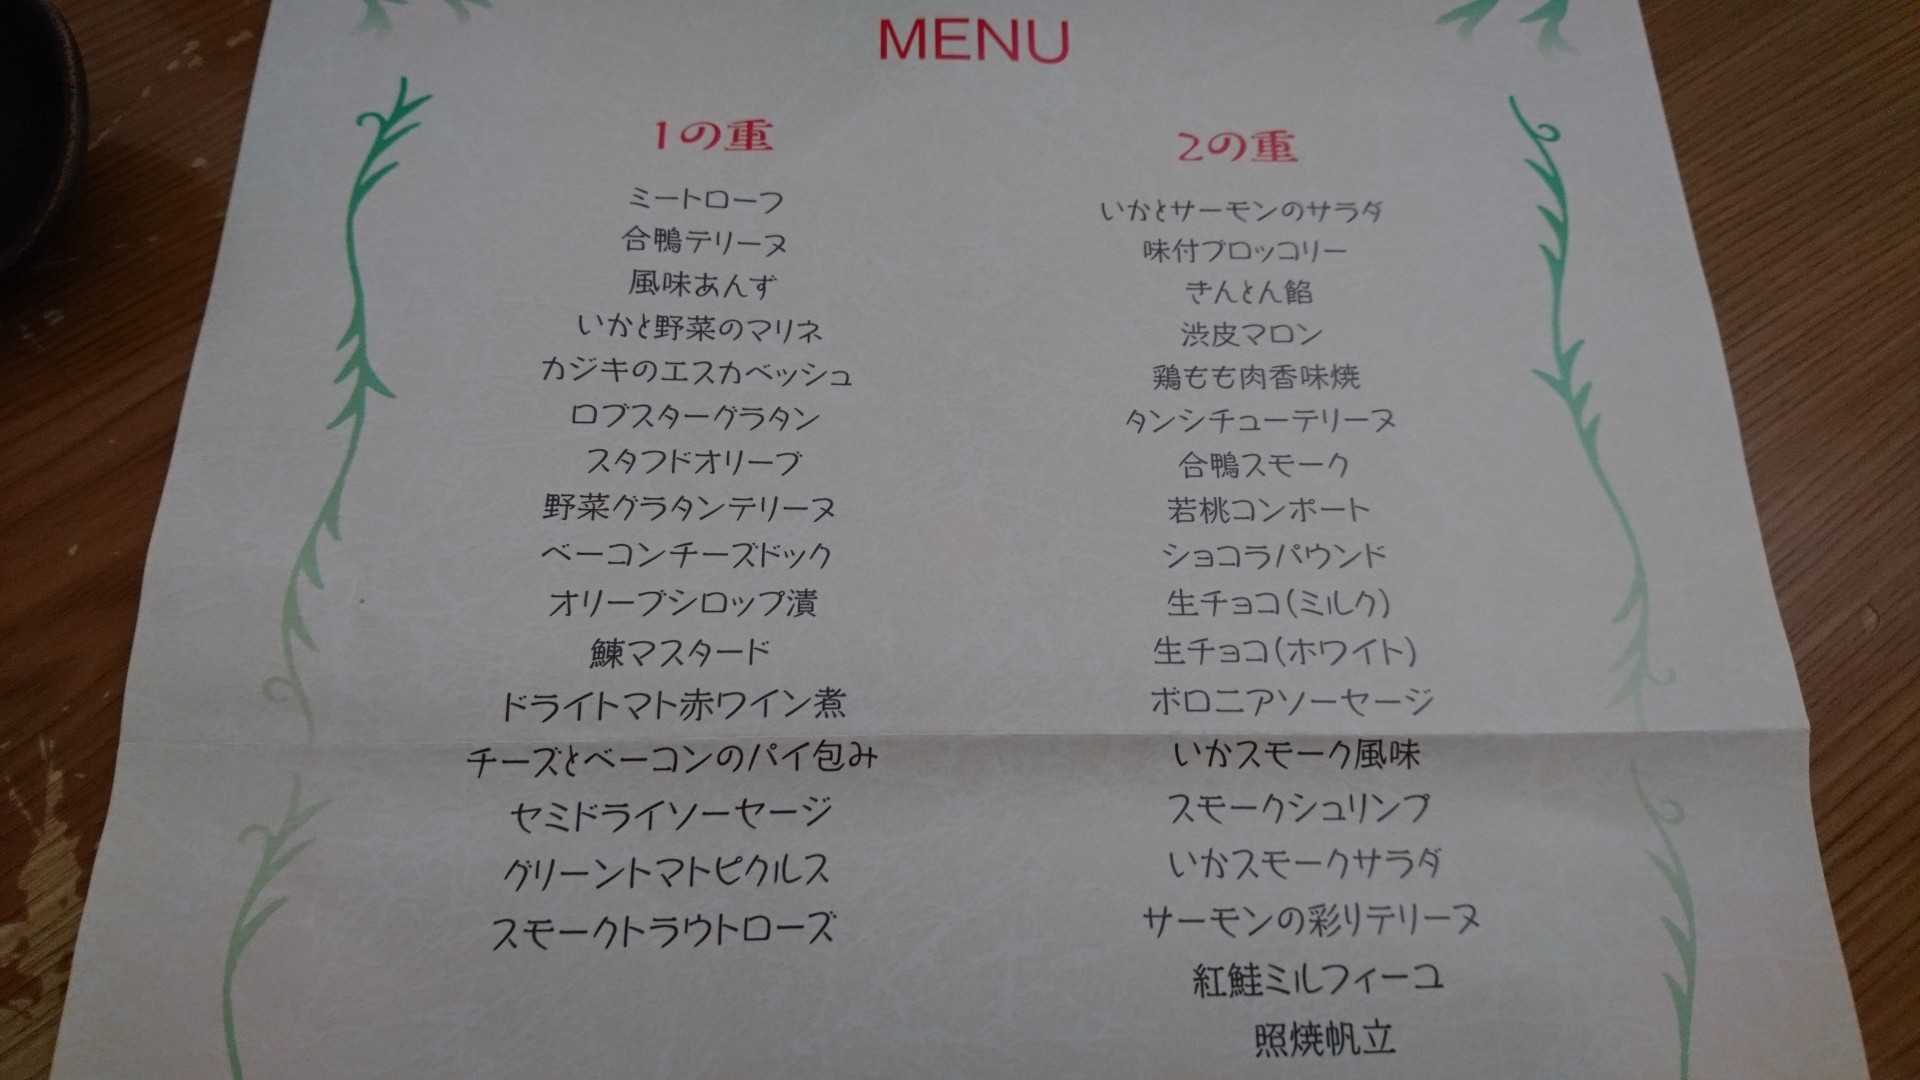 MENU
1の重
ミートローフ
合鴨テリーヌ
風味あんず
いかと野菜のマリネ
カジキのエスカベッシュ
ロブスターグラタン
スタフドオリーブ
野菜グラタンテリーヌ
ベーコンチーズドック
オリーブシロップ漬
鰊マスタード
ドライトマト赤ワイン煮
チーズとベーコンのパイ包み
セミドライソーセージ
グリーントマトピクルス
スモークトラウトローズ
2の重
いかとサーモンのサラダ
味付ブロッコリー
きんとん餡
渋皮マロン
鶏もも肉香味焼
タンシチューテリーヌ
合鴨スモーク
若桃コンポート
ショコラパウンド
生チョコ(ミルク)
生チョコ(ホワイト)
ボロニアソーセージ
いかスモーク風味
スモークシュリンプ
いかスモークサラダ
サーモンの彩りテリーヌ
紅鮭ミルフィーユ
照焼帆立